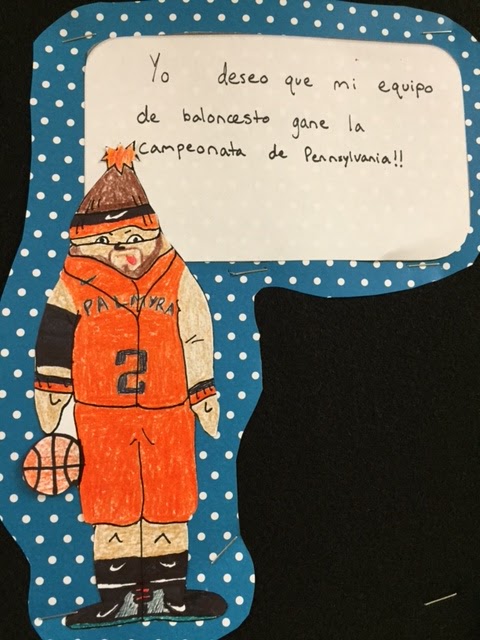 Yo deseo que mi equipo
de baloncesto gane la
campeonata de Pennsylvania!!
PALMYRA
2